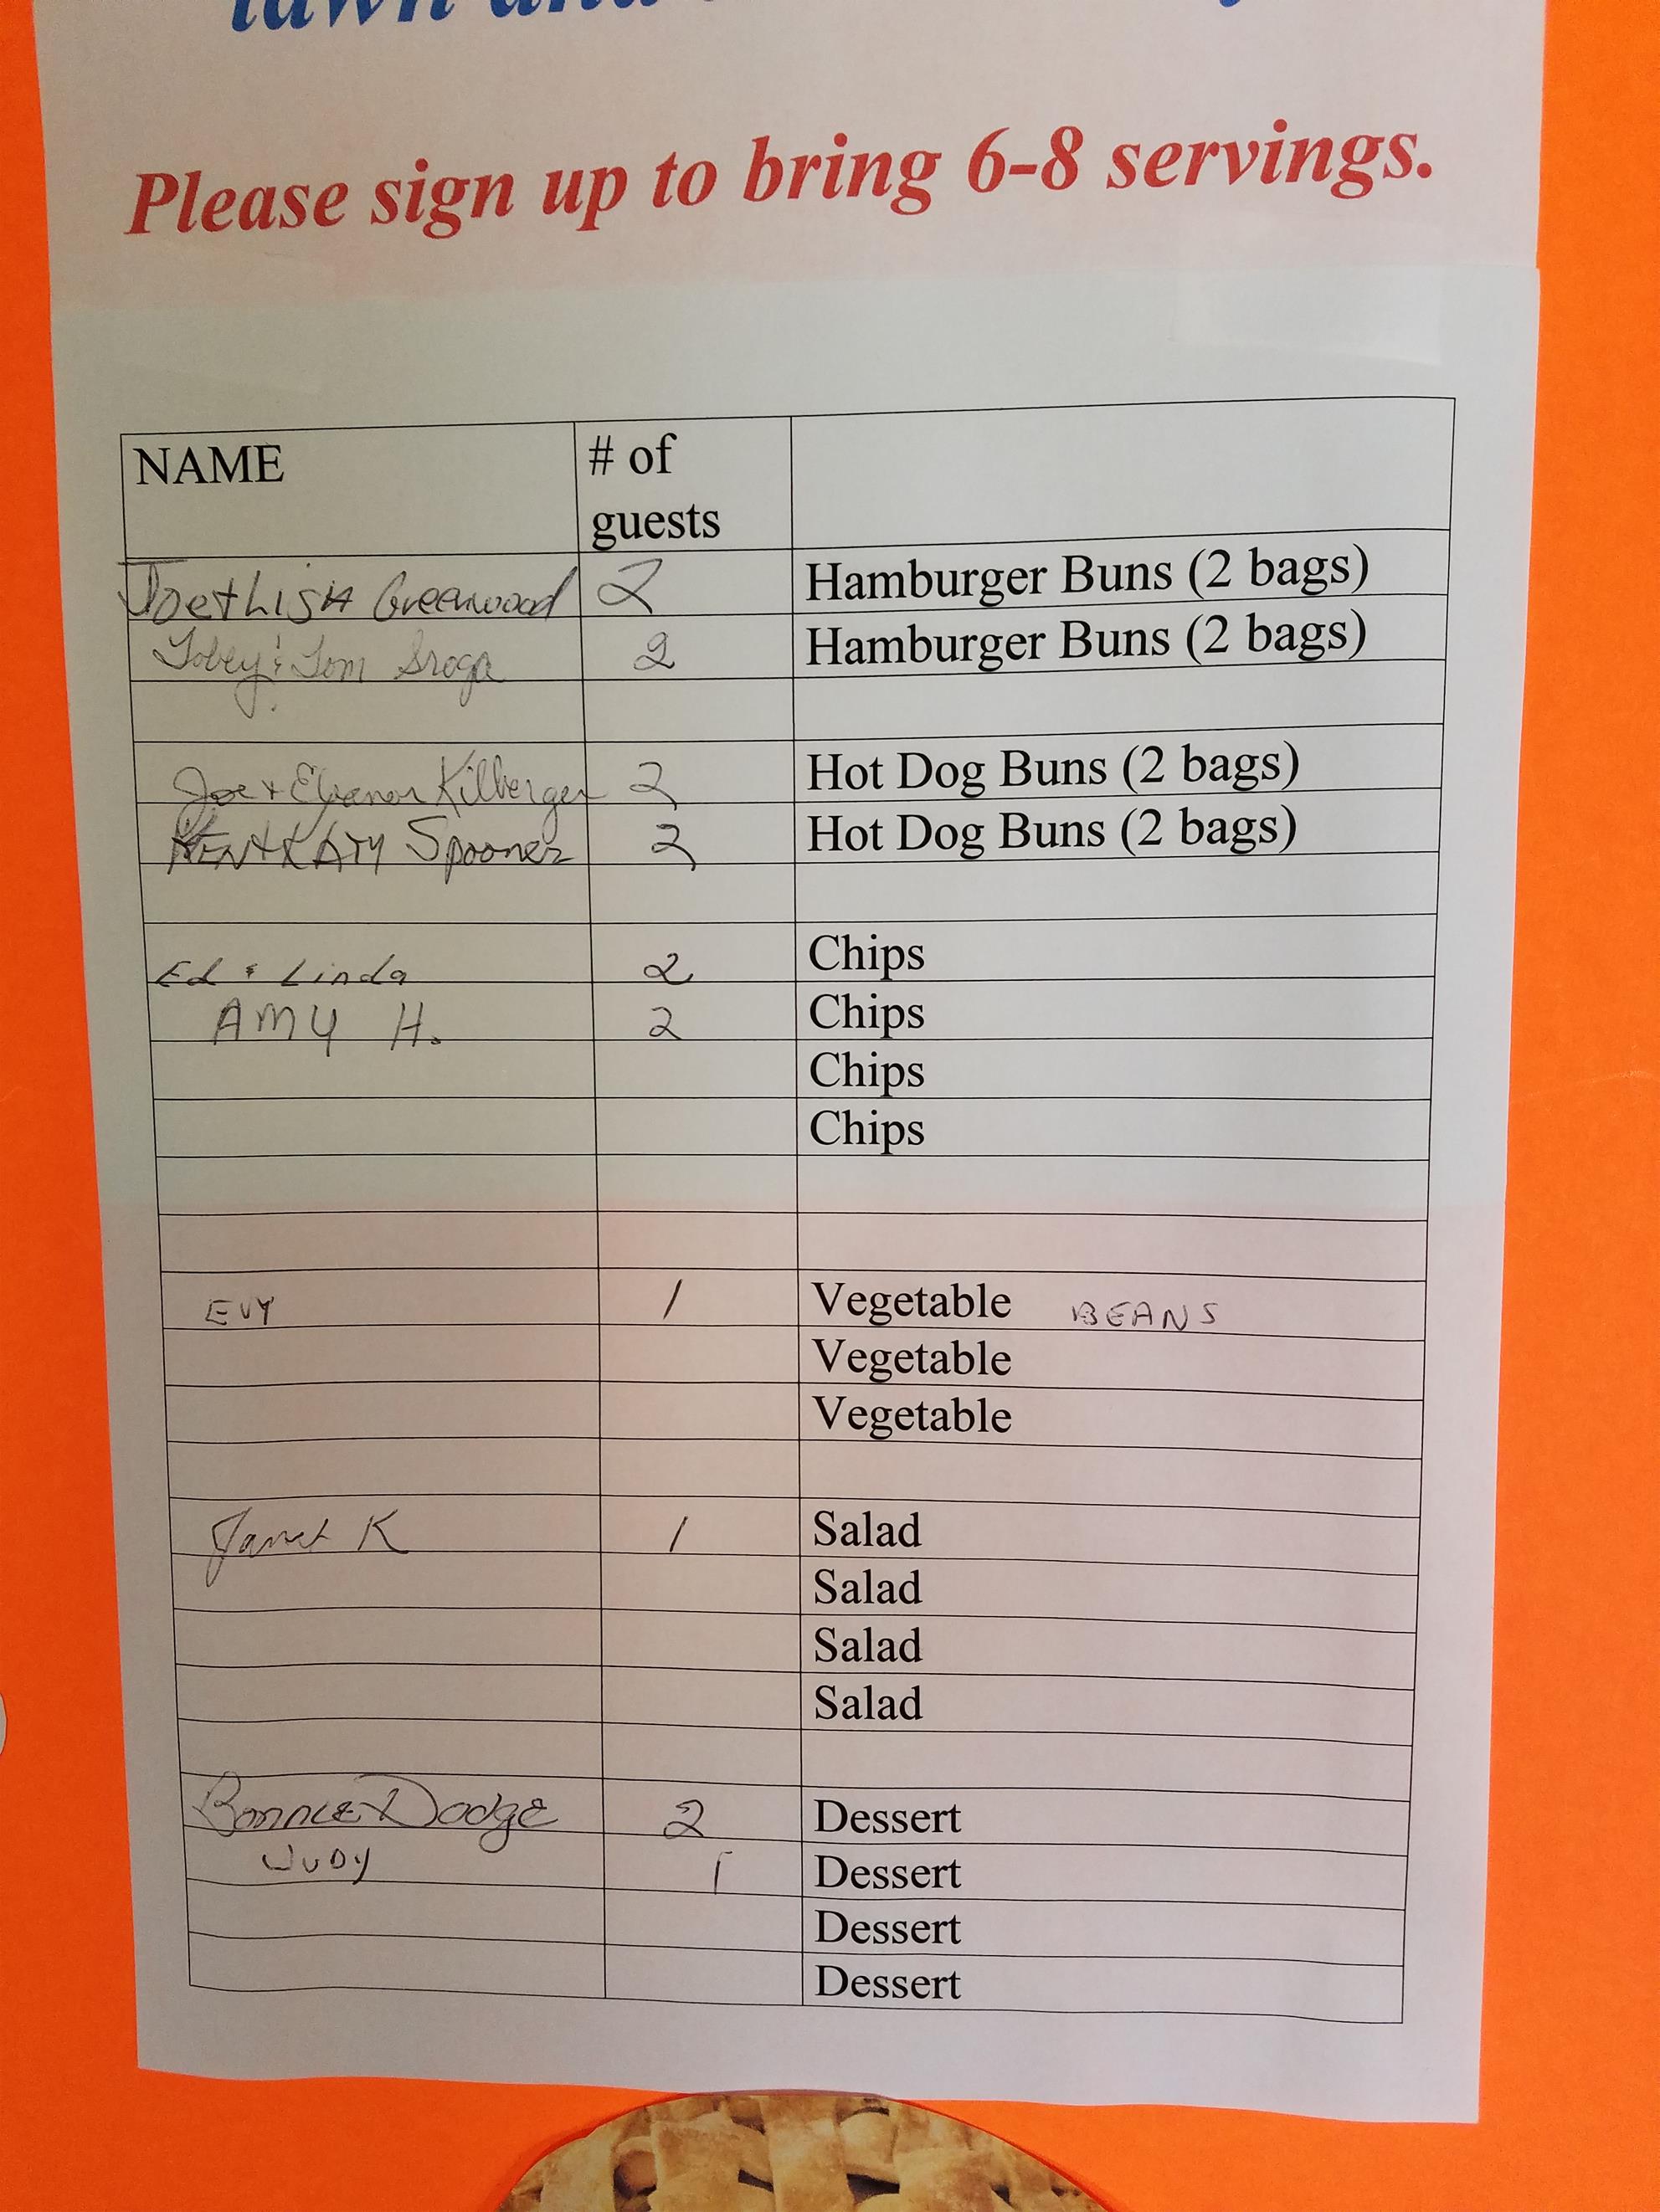 Please sign up to bring 6-8 servings.
NAME # of guests
Joe + Lisa Greenwood 2 Hamburger Buns (2 bags)
Tobey & Tom Sroga 2 Hamburger Buns (2 bags)
Joe + Eleanor Kilberger 2 Hot Dog Buns (2 bags)
KEN + KATY Spooner 2 Hot Dog Buns (2 bags)
Ed & Linda 2 Chips
AMY H. 2 Chips
Chips
Chips
EVY 1 Vegetable BEANS
Vegetable
Vegetable
Janet K 1 Salad
Salad
Salad
Salad
Bonnie Dodge 2 Dessert
JUDY 1 Dessert
Dessert
Dessert